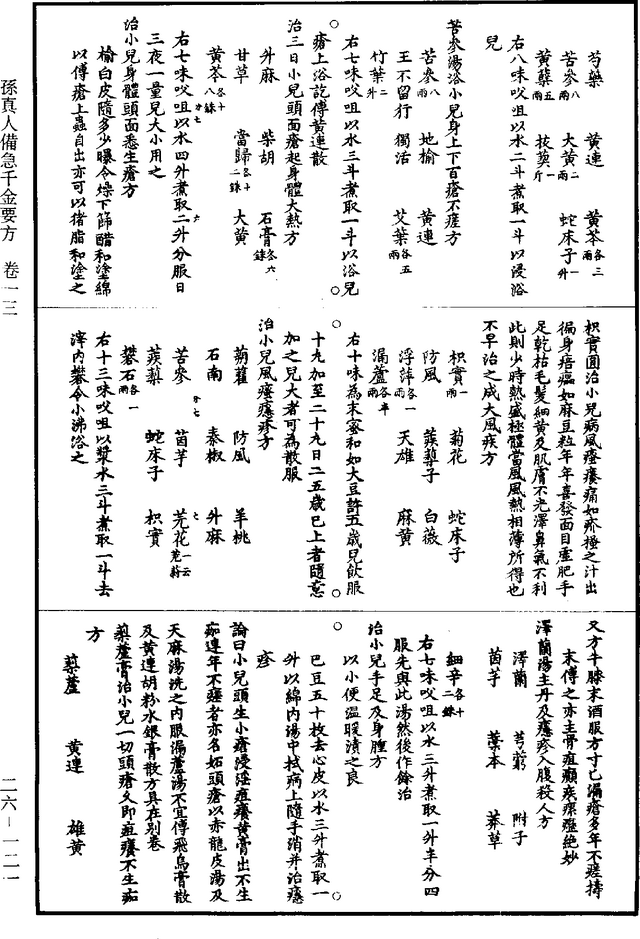 芍藥 黃連 黃芩各三兩
苦參八兩 大黃二兩 蛇床子一升
黃蘗五兩 菝葜一斤
右八味㕮咀以水二斗煮取一斗以浸浴
兒
苦參湯浴小兒身上下百瘡不瘥方
苦參八兩 地榆 黃連
王不留行 獨活 艾葉各五兩
竹葉二升
右七味㕮咀以水三斗煮取一斗以浴兒
瘡上浴訖傅黃連散
治三日小兒頭面瘡起身體大熱方
升麻 柴胡 石膏各六銖
甘草 當歸各十二銖 大黃
黃芩各十八銖
右七味㕮咀以水四升煮取二升分服日
三夜一量兒大小用之
治小兒身體頭面悉生瘡方
榆白皮隨多少曝令燥下篩醋和塗綿
以傅瘡上蟲自出亦可以猪脂和塗之
枳實圓治小兒病風瘙癢痛如疥搔之汁出
徧身㾦㿔如麻豆粒年年喜發面目虛肥手
足乾枯毛髮細黃及肌膚不光澤鼻氣不利
此則少時熱盛極體當風風熱相薄所得也
不早治之成大風疾方
枳實一兩 菊花 蛇床子
防風 蒺蔾子 白薇
浮萍各一兩 天雄 麻黃
漏蘆各半兩
右十味為末蜜和如大豆許五歲兒飲服
十丸加至二十丸日二五歲已上者隨意
加之兒大者可為散服
治小兒風瘙癮疹方
蒴藋 防風 羊桃
石南 秦椒 升麻
苦參 茵芋 芫花一云芫蔚
蒺藜 蛇床子 枳實
礬石各一兩
右十三味㕮咀以漿水三斗煮取一斗去
滓內礬令小沸浴之
又方牛膝末酒服方寸匕漏瘡多年不瘥擣
末傅之亦主骨疽癲疾瘰癧絕妙
澤蘭湯主丹及癮疹入腹殺人方
澤蘭 芎藭 附子
茵芋 藁本 莽草
細辛各十二銖
右七味㕮咀以水三升煮取一升半分四
服先與此湯然後作餘治
治小兒手足及身腫方
以小便溫暖漬之良
巴豆五十枚去心皮以水三升煮取一
升以綿內湯中拭病上隨手消并治癮
疹
論曰小兒頭生小瘡浸淫疽癢黃膏出不生
痂連年不瘥者亦名妬頭瘡以赤龍皮湯及
天麻湯洗之內服漏蘆湯不宜傅飛烏膏散
及黃連胡粉水銀膏散方具在別卷
藜蘆膏治小兒一切頭瘡久即疽癢不生痂
方
藜蘆 黃連 雄黃
孫真人備急千金要方 卷一三
二六-一二一